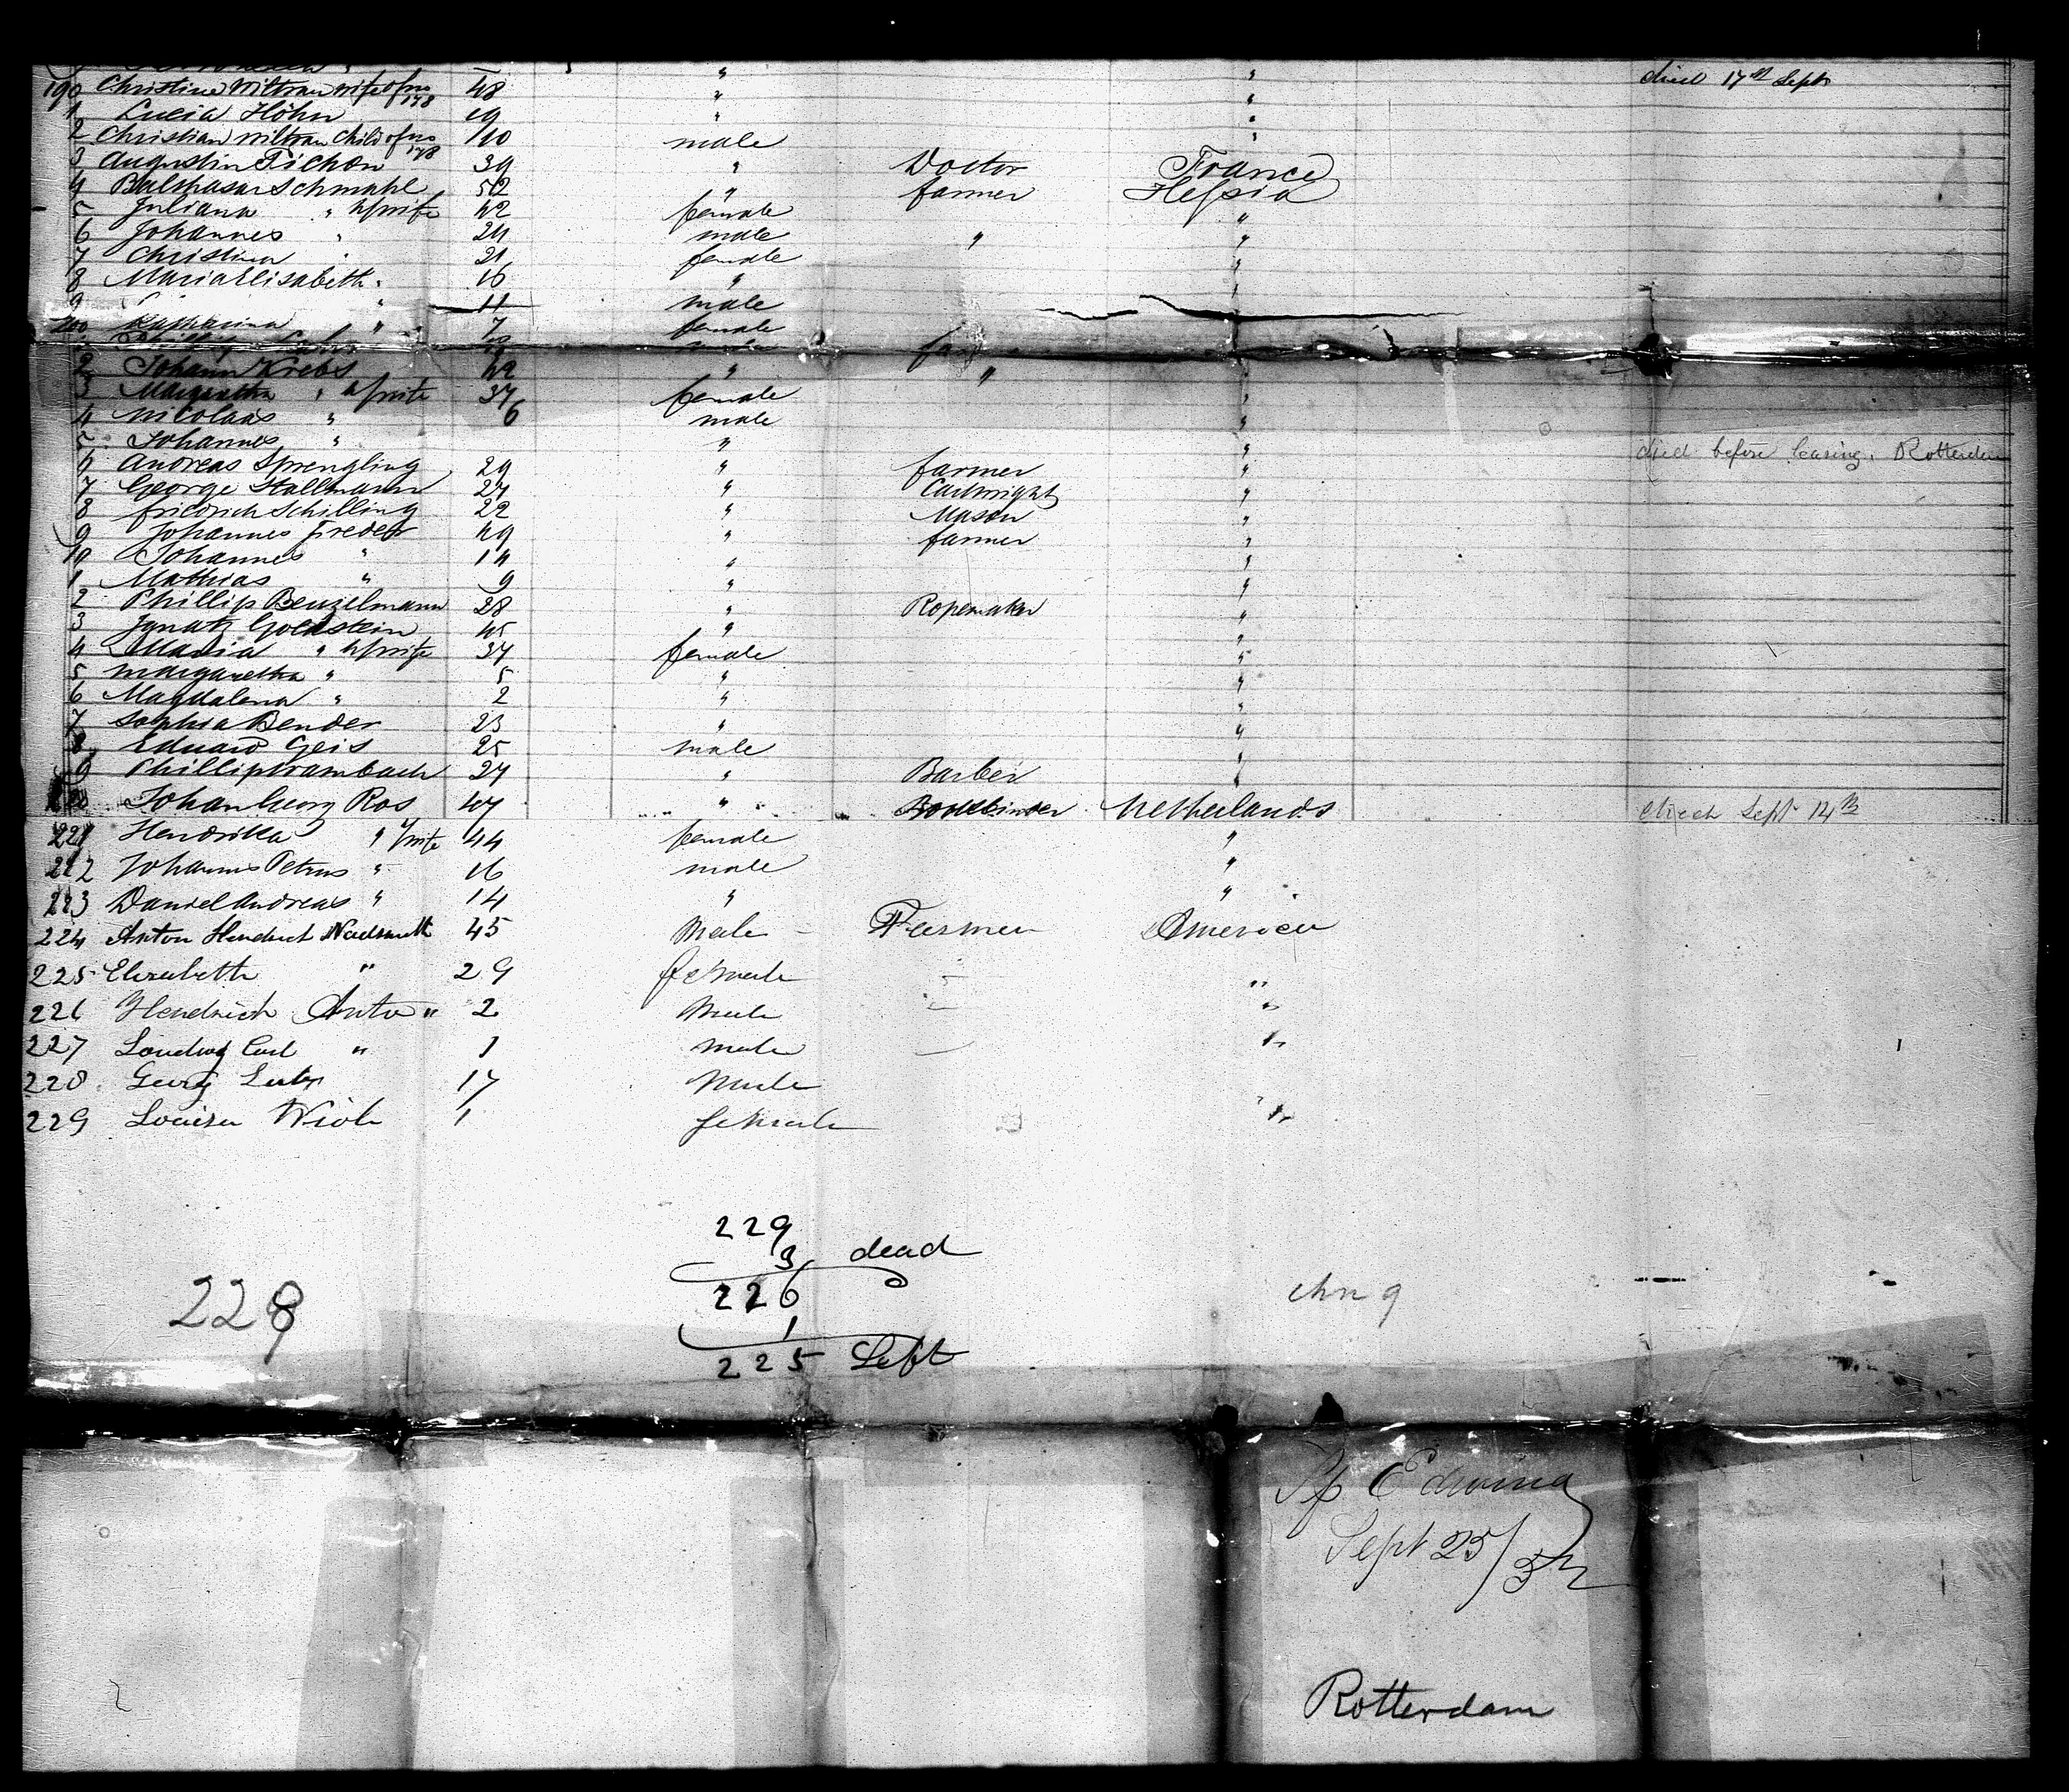 190 Christina Wiltrau wife of no 178 48 " " died 17th Sept
1 Lucia Höhn 19 " "
2 Christian Wiltrau child of no 178 10 male "
3 Augustin Pichon 39 " Doctor France
4 Balthasar Schmahl 52 " farmer Hessia
5 Juliana " wife 42 female "
6 Johannes " 24 male " "
7 Christina " 21 female "
8 Maria Elisabeth " 16 " "
9 " 11 male "
200 Katharina " 7 female
2 Johann Krebs 42 " "
3 Margaretha " wife 37 female "
4 Nicolaas " 6 male "
5 Johannes " " " died before leaving Rotterdam
6 Andreas Sprengling 29 " farmer "
7 George Stallmann 27 " Cartwright "
8 friedrich Schilling 22 " Mason "
9 Johannes Freder 49 " farmer "
10 Johannes " 14 " "
1 Mathias " 9 " "
2 Phillip Benzelmann 28 " Ropemaker "
3 Ignatz Goldstein 45 " "
4 Maria " wife 37 female "
5 Margaretha " 5 " "
6 Magdalena " 2 " "
7 Sophia Bender 23 " "
8 Eduard Geis 25 male "
9 Phillip Wambach 27 " Barber "
220 Johan Georg Ros 47 " Bookbinder Netherlands died Sept 14th
221 Hendrika " wife 44 female "
222 Johannes Petrus " 16 male "
223 Daniel Andreas " 14 " "
224 Anton Hendrich 45 Male Farmer America
225 Elisabeth " 29 female "
226 Hendrich Anto " 2 Male "
227 Loudwig Carl " 1 male "
228 Georg 17 Male
229 Louisa 1 female "
229
3 dead
226
1
225 Left
229
Sept 25/54
Rotterdam